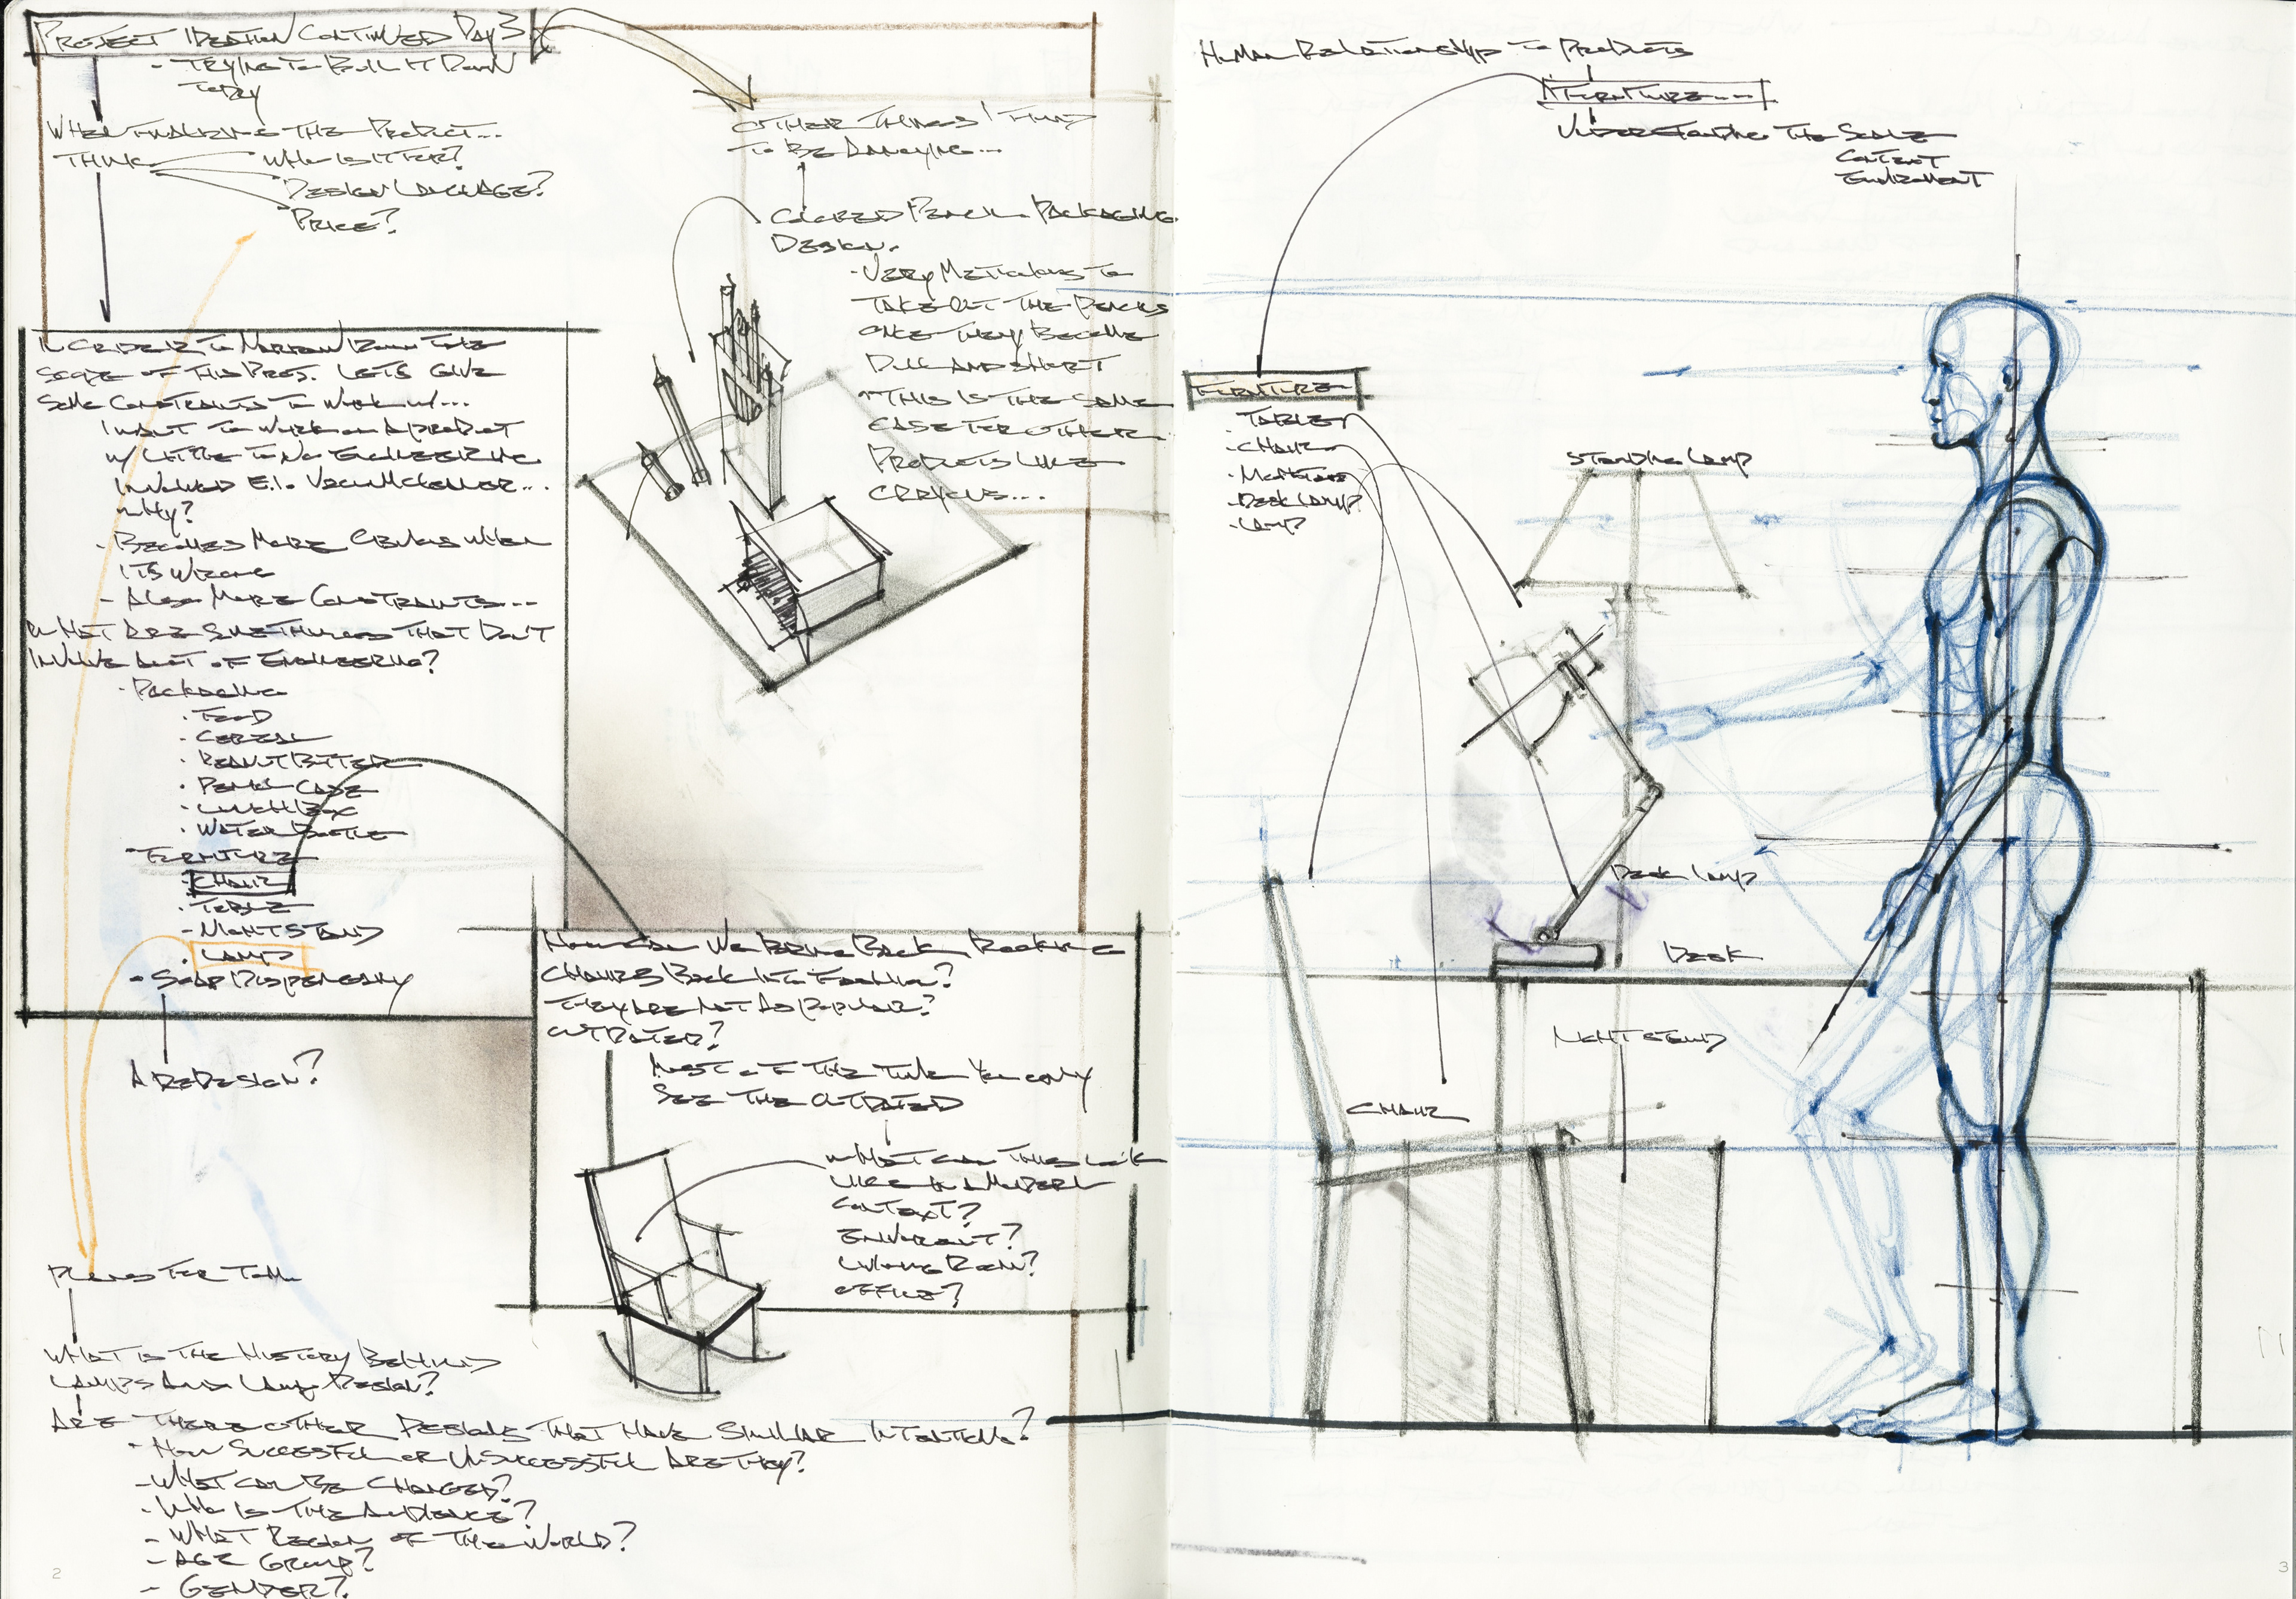 PROJECT IDEATION CONTINUED DAY 3
- TRYING TO BOIL IT DOWN
TODAY
WHEN FINALIZING THE PRODUCT...
THINK
WHO IS IT FOR?
DESIGN LANGUAGE?
PRICE?
IN ORDER TO NARROW DOWN THE
SCOPE OF THIS PROJ. LETS GIVE
SOME CONSTRAINTS TO WORK W/...
I WANT TO WORK ON A PRODUCT
W/ LITTLE TO NO ENGINEERING
INVOLVED E.I. VACUUM CLEANER...
WHY?
- BECOMES MORE OBVIOUS WHEN
ITS WRONG
- ALSO MORE CONSTRAINTS...
WHAT ARE SOME THINGS THAT DON'T
INVOLVE ALOT OF ENGINEERING?
- PACKAGING
· FOOD
· CEREAL
· PEANUT BUTTER
· PENCIL CASE
· LUNCH BOX
· WATER BOTTLE
- FURNITURE
· CHAIR
· TABLE
- NIGHT STAND
· LAMP
- SOAP DISPENSARY
A REDESIGN?
PLANS FOR TOM.
WHAT IS THE HISTORY BEHIND
LAMPS AND LAMP DESIGN?
ARE THERE OTHER DESIGNS THAT HAVE SIMILAR INTENTIONS?
- HOW SUCCESSFUL OR UNSUCCESSFUL ARE THEY?
- WHAT CAN BE CHANGED?
- WHO IS THE AUDIENCE?
- WHAT REGION OF THE WORLD?
- AGE GROUP?
- GENDER?
2
OTHER THINGS I FIND
TO BE ANNOYING...
COLORED PENCIL PACKAGING
DESIGN.
- VERY METICULOUS TO
TAKE OUT THE PENCILS
ONCE THEY BECOME
DULL AND SHORT
* THIS IS THE SAME
CASE FOR OTHER
PRODUCTS LIKE
CRAYONS...
HOW CAN WE BRING BACK ROCKING
CHAIRS BACK INTO FASHION?
THEY ARE NOT AS POPULAR?
OUTDATED?
MOST OF THE TIME YOU ONLY
SEE THE OUTDATED
WHAT CAN THIS LOOK
LIKE IN A MODERN
CONTEXT?
LIVING ROOM?
OFFICE?
HUMAN RELATIONSHIP TO PRODUCTS
FURNITURE...
UNDERSTANDING THE SCALE
CONTEXT
ENVIRONMENT
FURNITURE
· TABLE
· CHAIR
· DESK LAMP
· LAMP
STANDING LAMP
DESK LAMP
DESK
NIGHT STAND
CHAIR
3